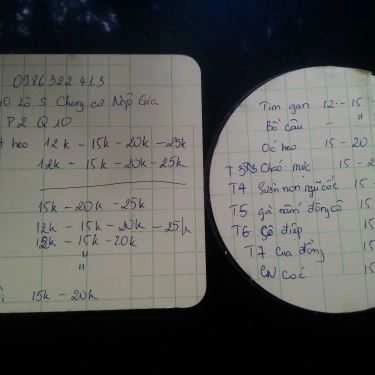 0986322 413
Lô S Chung cư Ngô Gia
P2 Q10
heo 12k - 15k - 20k - 25k
12k - 15k - 20k - 25k
15k - 20k - 25k
12k - 15k - 20k - 25k
12k - 15k - 20k
"
"
15k - 20k
Tim gan 12 - 15
Bồ câu - "
Óc heo 15 - 20
Cháo mực 15 - 2
T4 Sườn non ngũ cốc 15
T5 gà nấm đông cô 15
T6 Sò điệp 15
T7 Cua đồng 15
CN Cá 15